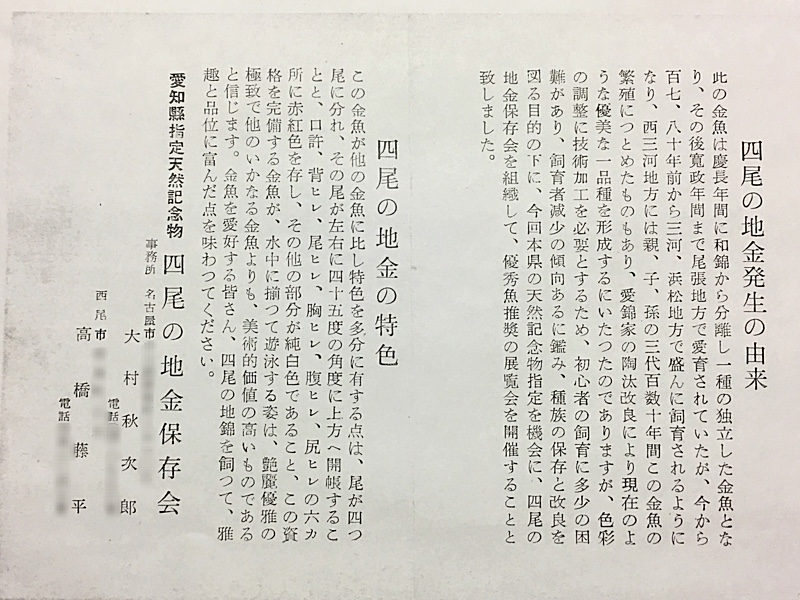 四尾の地金発生の由来
此の金魚は慶長年間に和錦から分離し一種の独立した金魚とな
り、その後寛政年間まで尾張地方で愛育されていたが、今から
百七、八十年前から三河、浜松地方で盛んに飼育されるように
なり、西三河地方には親、子、孫の三代百数十年間この金魚の
繁殖につとめたものもあり、愛錦家の陶汰改良により現在のよ
うな優美な一品種を形成するにいたつたのでありますが、色彩
の調整に技術加工を必要とするため、初心者の飼育に多少の困
難があり、飼育者減少の傾向あるに鑑み、種族の保存と改良を
図る目的の下に、今回本県の天然記念物指定を機会に、四尾の
地金保存会を組織して、優秀魚推奨の展覧会を開催することと
致しました。
四尾の地金の特色
この金魚が他の金魚に比し特色を多分に有する点は、尾が四つ
尾に分れ、その尾が左右に四十五度の角度に上方へ開帳するこ
とと、口許、背ヒレ、尾ヒレ、胸ヒレ、腹ヒレ、尻ヒレの六カ
所に赤紅色を存し、その他の部分が純白色であること、この資
格を完備する金魚が、水中に揃つて遊泳する姿は、艶麗優雅の
極致で他のいかなる金魚よりも、美術的価値の高いものである
と信じます。金魚を愛好する皆さん、四尾の地錦を飼つて、雅
趣と品位に富んだ点を味わつてください。
愛知縣指定天然記念物 四尾の地金保存会
事務所 名古屋市
大村秋次郎
電話
西尾市
高橋藤平
電話